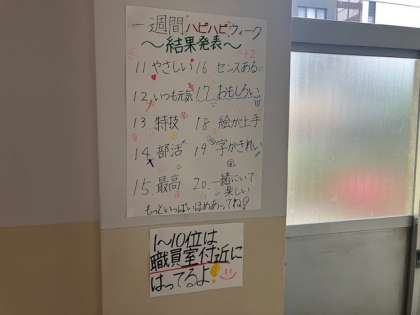 一週間ハピハピウィーク
～結果発表～
11 やさしい 16 センスある
12 いつも元気 17 おもしろい
13 特技 18 絵が上手
14 部活 19 字がきれい
15 最高 20 一緒にいて楽しい
もっといっぱいほめあってね
1～10位は
職員室付近に
はってるよ!